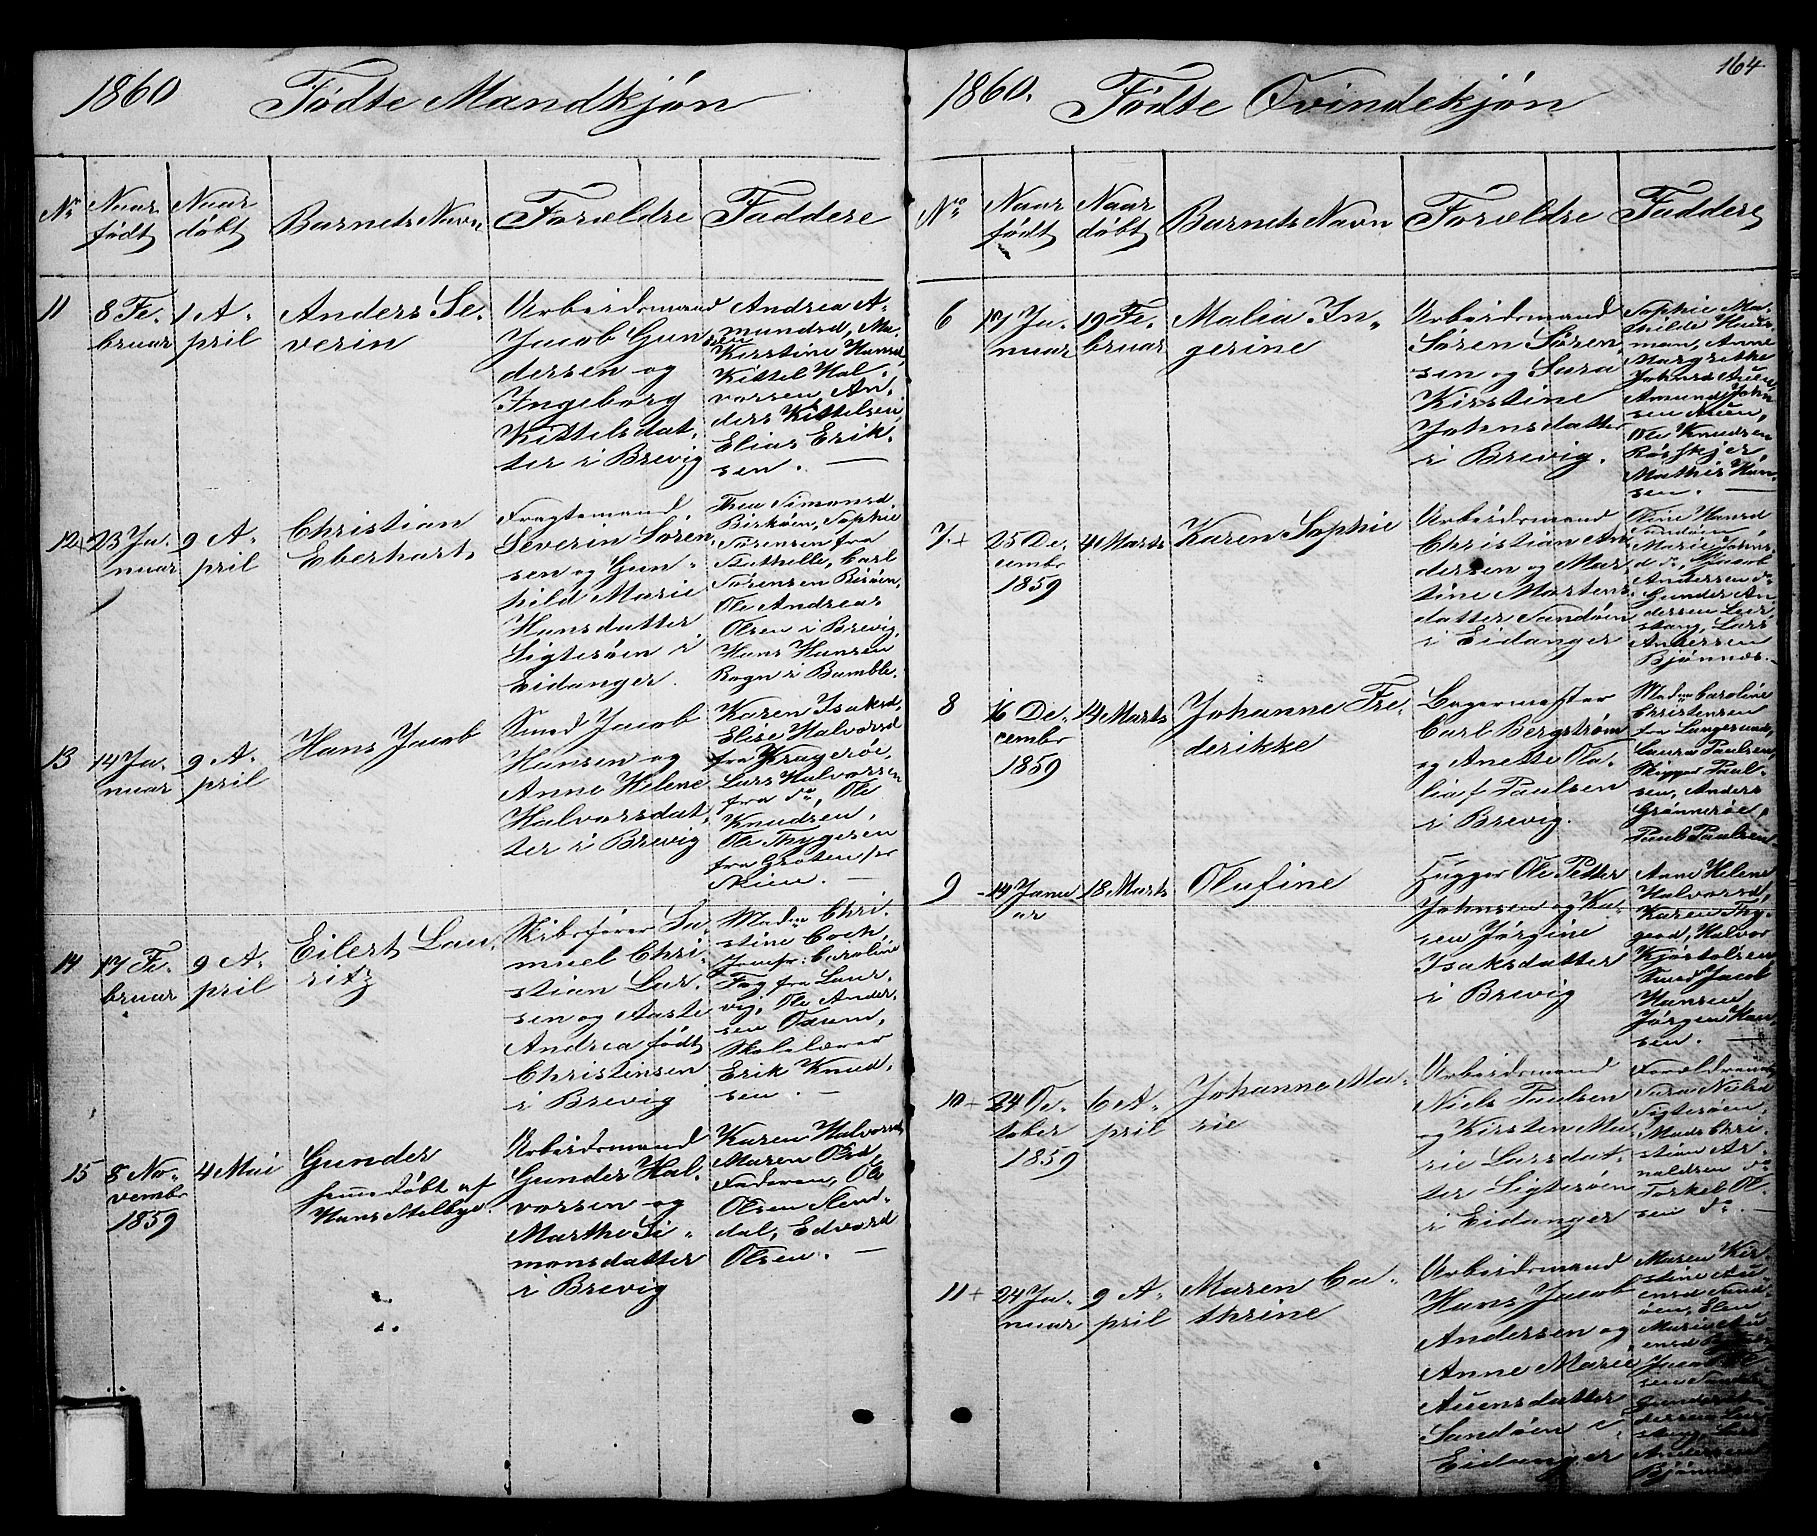 1860 Fødte Mandkjøn
No
Naar
født
Naar
døbt
Barnets Navn
Forældre
Faddere
11
8 Fe-
bruar
1 A-
pril
Anders Se-
verin
Arbeidsmand
Jacob Gun-
dersen og
Ingeborg
Kittelsdat-
ter i Brevig
Andrea A-
mundsd, Ma-
ren
Kirstine Hansd,
Kittel Hal-
vorsen, An-
ders Kittelsen,
Elias Erik-
sen. —
12+
23 Ja-
nuar
9 A-
pril
Christian
Eberhart
Fragtemand
Severin Søren-
sen og Gun-
hild Marie
Hansdatter
Sigtesøen i
Eidanger.
Thea Simonsd
Birkøen, Sophie
Sørensen fra
Stathelle, Carl
Sørensen Birøen,
Ole Andreas
Olsen i Brevig,
Hans Hansen
Rogn i Bamble.
13
14 Ja-
nuar
9 A-
pril
Hans Jacob
Smed Jacob
Hansen og
Anne Helene
Halvorsdat-
ter i Brevig
Karen Isaksd,
Elise Halvorsd
fra Kragerøe,
Lars Halvorsen
fra do, Ole
Knudsen,
Ole Thygesen
fra Groten pr
Skien. —
14
17 Fe-
bruar
9 A-
pril
Eilert Lau-
ritz
Skibsfører Sa-
muel Chri-
stian Lar-
sen og Aaste
Andrea født
Christensen
i Brevig
Madm Chri-
stine Cock,
Jomfr: Caroline
Fog fra Laur-
vig, Ole Ander-
sen Oxum,
Skolelærer
Erik Knud-
sen. —
15
8 No-
vembr
1859
4 Mai
Gunder
hjemmedøbt af
Hans Melbye.
Arbeidsmand
Gunder Hal-
vorsen og
Marthe Si-
monsdatter
i Brevig
Karen Halvorsd,
Maren Olsd,
Faderen, Ole
Olsen Slem-
dal, Edvard
Olsen. —
164
1860. Fødte Qvindekjøn
No
Naar
født
Naar
døbt
Barnets Navn
Forældre
Faddere
6
17 Ja-
nuar
19 Fe-
bruar
Malia In-
gerine
Arbeidsmand
Søren Søren-
sen og Sara
Kirstine
Johnsdatter
i Brevig.
Sophie Ma-
thilde Haur-
man, Anne
Margrethe
Johnsd Auen,
Amund John-
sen Auen,
Ole Knudsen
Rørskjer,
Mathis Han-
sen. —
7+
25 De-
cembr
1859
4 Marts
Karen Sophie
Arbeidsmand
Christian An-
dersen og Mar-
tine Martens-
datter Sandøen
i Eidanger
Oline Hansd
Sandøen,
Marie Johns-
d do, Jacob
Andersen do
Gunder An-
dersen Leer-
stang, Lars
Andersen
Bjønnes. —
8
16 De-
cembr
1859
14 Marts
Johanne Fre-
derikke
Bagermester
Carl Bergstrøm
og Anette Ola-
lia f. Paulsen
i Brevig.
Madm Caroline
Christensen
fra Langesund,
Laura Paulsen,
Skipper Paul-
sen, Anders
Grønnerøe,
Paul Paulsen
9
14 Janu-
ar
18 Marts
Olufine
Hugger Ole Petter
Johnsen og Ka-
ren Jørgine
Isaksdatter
i Brevig
Anne Helene
Halvorsd,
Karen Thy-
gesd, Halvor
Kjøstolsen,
Smed Jacob
Hansen,
Jørgen Han-
sen. —
10+
24 Oc-
tober
1859
6 A-
pril
Johanne Ma-
rie
Arbeidsmand
Niels Paulsen
og Kirsten Ma-
rie Larsdat-
ter Sigtesøen
i Eidanger
Forældrene,
Sara Nielsd
Sigtesøen,
Mads Chri-
stian Ar-
naldsen do
Torkel Ol-
sen do. —
11+
24 Ja-
nuar
9 A-
pril
Maren Ca-
thrine
Arbeidsmand
Hans Jacob
Andersen og
Anne Marie
Auensdatter
Sandøen i
Eidanger
Maren Kir-
stine Au-
ensd Sand-
øen, Elen
Marie Au-
ensd
Jacob Ol-
sen
Gunder An-
dersen
Lars
Andersen
Bjønnes